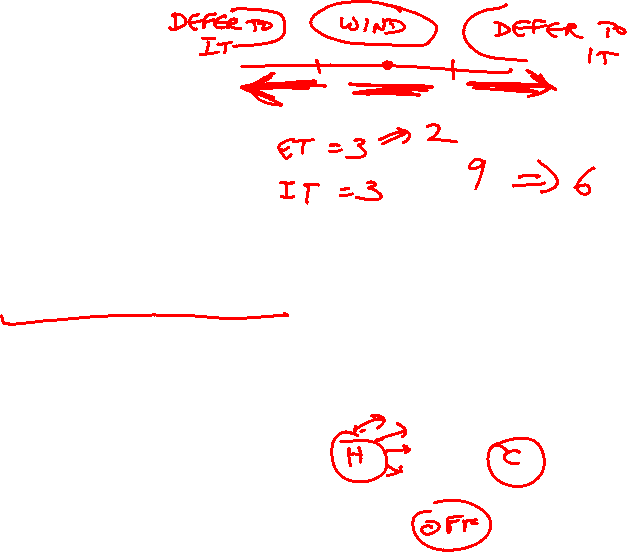 DEFER TO IT
WIND
DEFER TO IT
ET = 3 ⇒ 2
IT = 3
9 ⇒ 6
H
C
OFF